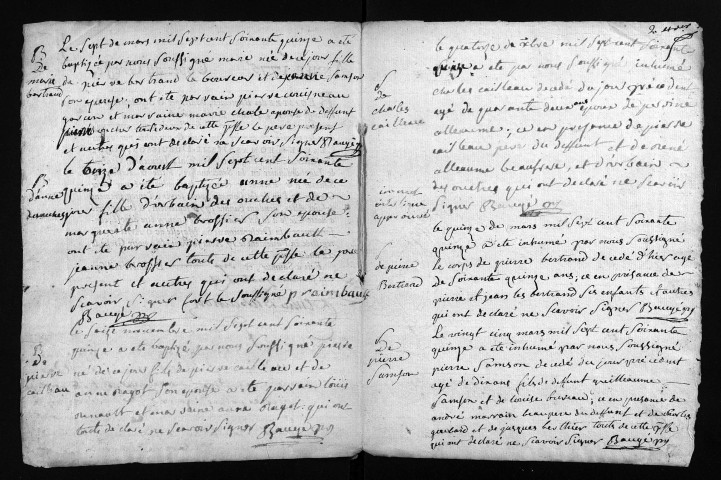 Le Sept de mars mil Sept cent Soixante quinze a été
B
de
marie
bertrand
baptizée par nous Soussigné marie née de ce jour fille
de pierre bertrand et de Samson
Son epouse, ont été parrain pierre
garson et marraine marie epouse de deffunt
pierre touts deux de cette psse le pere present
et autres qui ont declaré ne Scavoir Signer Baugé
le treize d'aoust mil Sept cent Soixante
B
d'anne
desouches
quinze a été baptizée anne née de ce
jour fille d'urbain des ouches et de
marguerite anne brossier Son epouse
ont été parrain pierre Raimbault
jeanne brossier touts de cette psse le pere
present et autres qui ont declaré ne
Scavoir Signer fors le Soussigné p raimbault
Baugé
le Seize novembre mil Sept cent Soixante
B
de
pierre
cailleau
quinze a été baptizé par nous Soussigné pierre
né de ce jour fils de pierre cailleau et de
anne Ragot Son epouse a été parrain louis
et marraine anne Ragot qui ont
touts declaré ne Scavoir Signer Baugé
le quatorze de mil Sept cent Soixante
quinze a été par nous Soussigné inhumé
S
de
charles
cailleau
charles cailleau decedé du jour précédent
agé de quarante deux ans epoux de perrine
alleaume; ce en presence de pierre
cailleau pere du deffunt et de rené
alleaume beaufrere, et d'urbain
des ouches qui ont declaré ne Scavoir
Signer Baugé
un mot
interligne
approuvé
le quinze de mars mil Sept cent Soixante
quinze a été inhumé par nous Soussigné
S
de pierre
Bertrand
le corps de pierre bertrand decedé d'hier agé
de Soixante quinze ans; ce en presence de
pierre et jean les bertrand Ses enfants et autres
qui ont declaré ne Scavoir Signer Baugé
Le vingt cinq mars mil Sept cent Soixante
S
de
pierre
Samson
quinze a été inhumé par nous Soussigné
pierre Samson decedé du jour précédent
agé de dix ans fils de deffunt guilleaume
Samson et de louise ; ce en presence de
andré beaupere du deffunt et de
et de jacques touts de cette psse
qui ont declaré ne Scavoir Signer Baugé